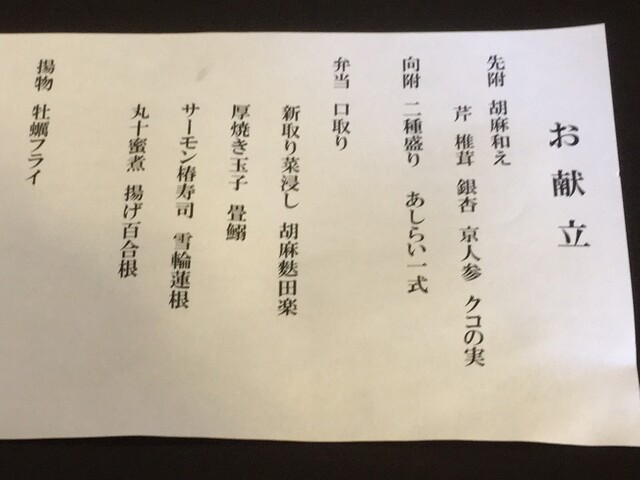 お献立
先附 胡麻和え
芹 椎茸 銀杏 京人参 クコの実
向附 二種盛り あしらい一式
弁当 口取り
新取り菜浸し 胡麻麩田楽
厚焼き玉子 畳鰯
サーモン椿寿司 雪輪蓮根
丸十蜜煮 揚げ百合根
揚物 牡蠣フライ